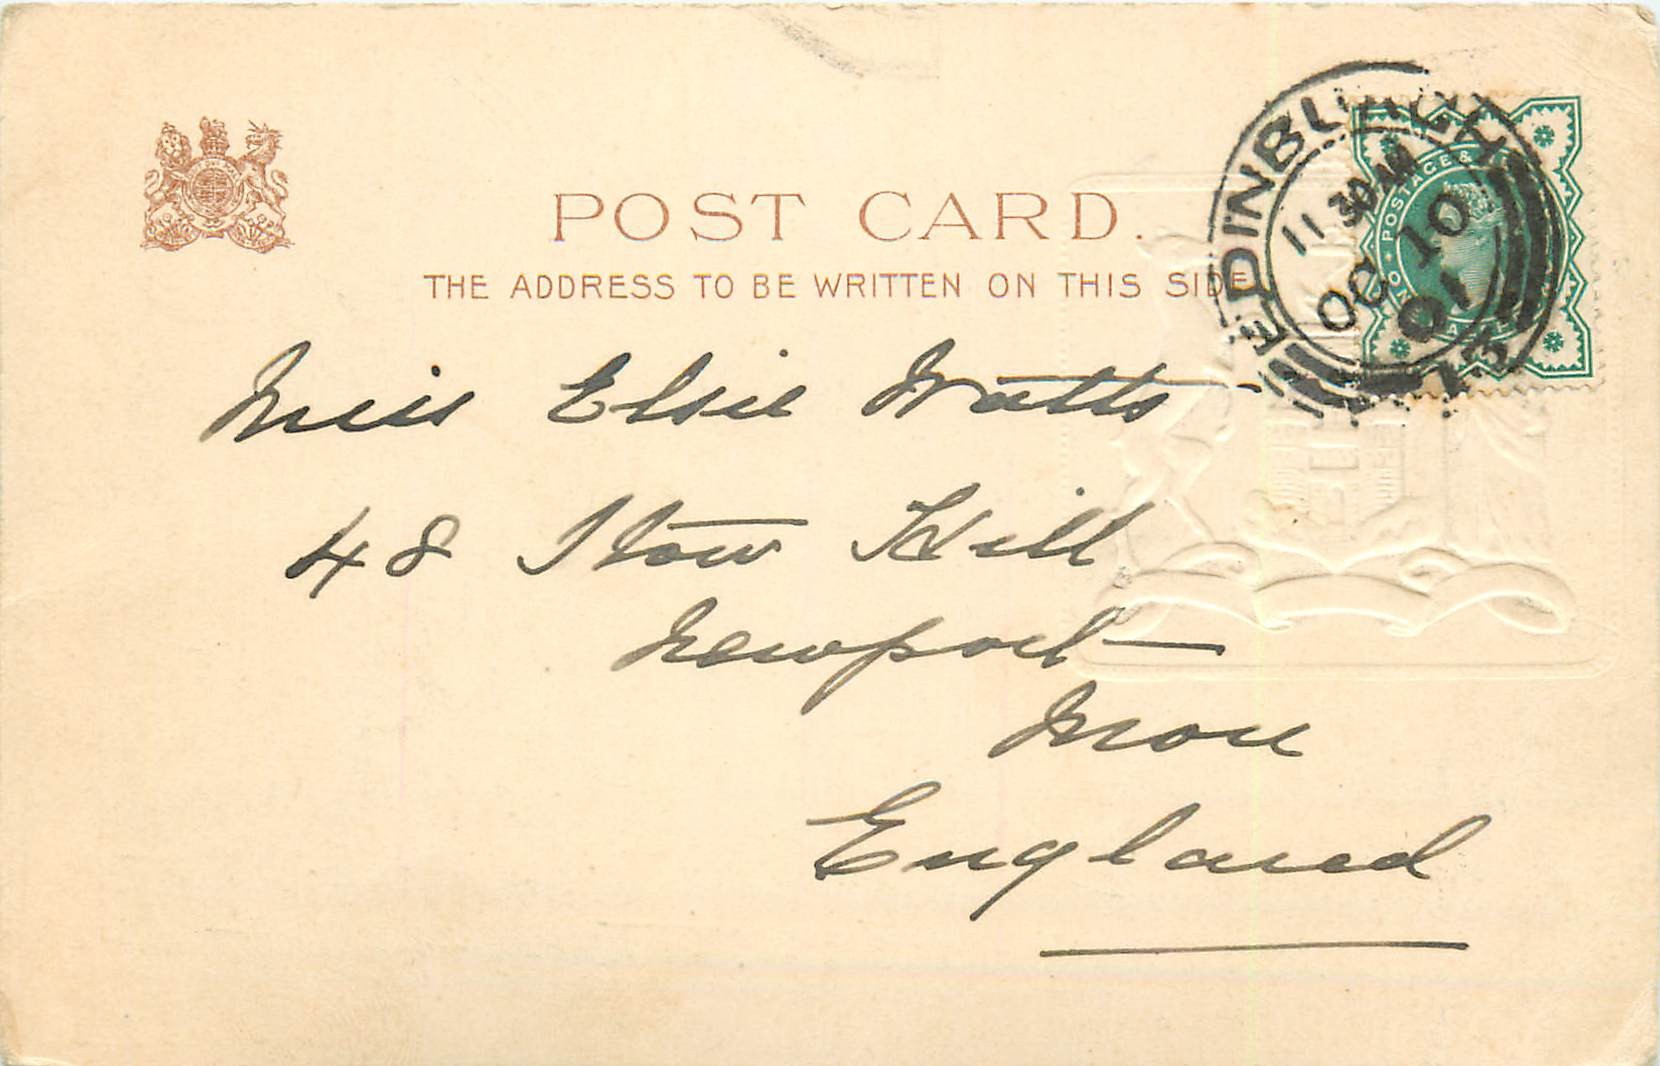 POST CARD.
THE ADDRESS TO BE WRITTEN ON THIS SIDE
EDINBURGH
11 30 AM
OC 10
01
POSTAGE &
Miss Elsie Watts
48 Stow Hill
Newport
Mon
England